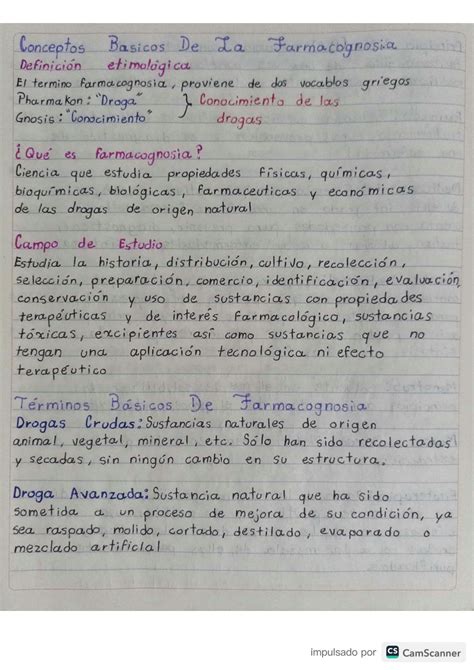 Conceptos Basicos De La Farmacognosia
Definición etimológica
El termino farmacognosia, proviene de dos vocablos griegos
Pharmakon: "Droga" } Conocimiento de las
Gnosis: "Conocimiento" drogas
¿Qué es farmacognosia?
Ciencia que estudia propiedades físicas, químicas,
bioquímicas, biológicas, farmaceuticas y económicas
de las drogas de origen natural
Campo de Estudio
Estudia la historia, distribución, cultivo, recolección,
selección, preparación, comercio, identificación, evaluación,
conservación y uso de sustancias con propiedades
terapéuticas y de interés farmacológico, sustancias
tóxicas, excipientes así como sustancias que no
tengan una aplicación tecnológica ni efecto
terapéutico
Términos Básicos De Farmacognosia
Drogas Crudas: Sustancias naturales de origen
animal, vegetal, mineral, etc. Sólo han sido recolectadas
y secadas, sin ningún cambio en su estructura.
Droga Avanzada: Sustancia natural que ha sido
sometida a un proceso de mejora de su condición, ya
sea raspado, molido, cortado, destilado, evaporado o
mezclado artificial
impulsado por CS CamScanner